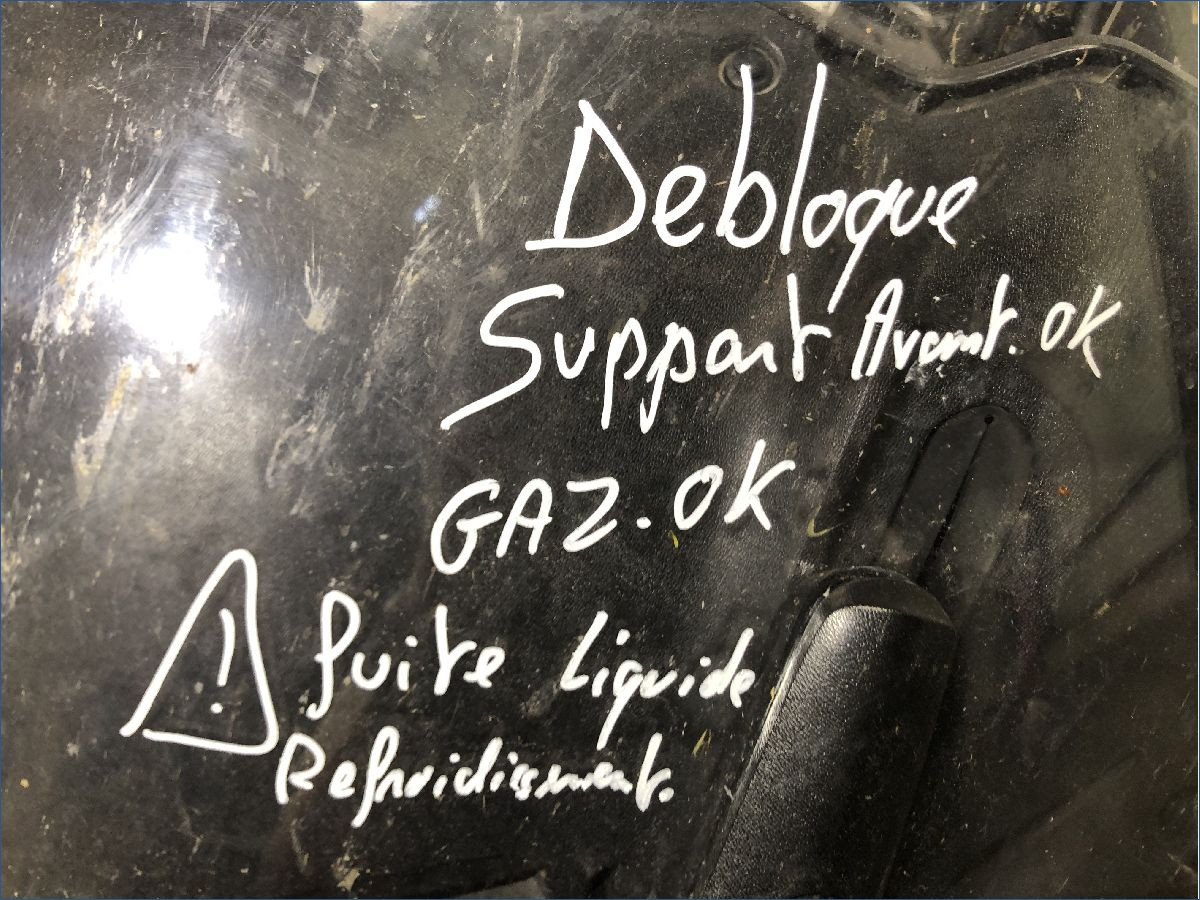 Debloque
Support Avant. OK
GAZ. OK
! fuite Liquide
Refroidissement.